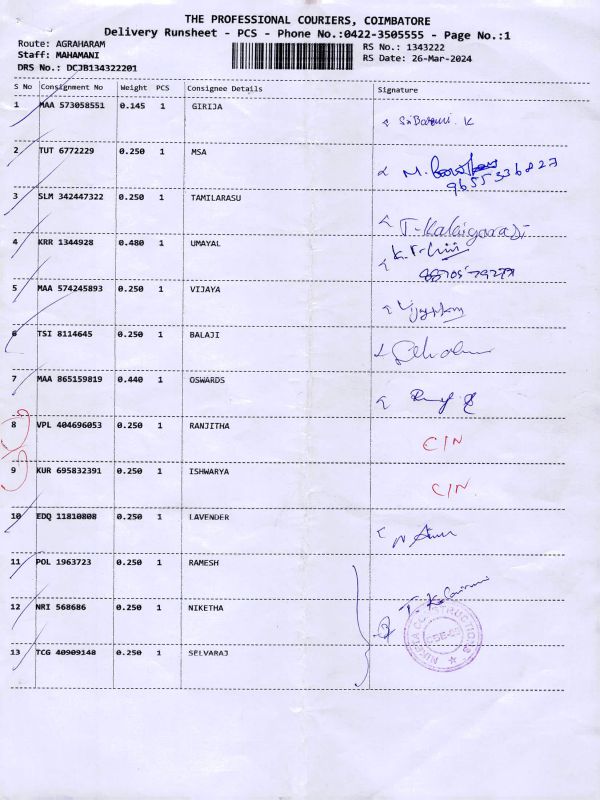 THE PROFESSIONAL COURIERS, COIMBATORE
Delivery Runsheet - PCS - Phone No.:0422-3505555 - Page No.:1
Route: AGRAHARAM
Staff: MAHAMANI
DRS No.: DCJB134322201
RS No.: 1343222
RS Date: 26-Mar-2024
S No Consignment No Weight PCS Consignee Details Signature
1 MAA 573058551 0.145 1 GIRIJA
2 TUT 6772229 0.250 1 MSA M. 9655336827
3 SLM 342447322 0.250 1 TAMILARASU
4 KRR 1344928 0.480 1 UMAYAL
5 MAA 574245893 0.250 1 VIJAYA
6 TSI 8114645 0.250 1 BALAJI
7 MAA 865159819 0.440 1 OSWARDS
8 VPL 404696053 0.250 1 RANJITHA C/N
9 KUR 695832391 0.250 1 ISHWARYA C/N
10 EDQ 11810808 0.250 1 LAVENDER
11 POL 1963723 0.250 1 RAMESH
12 NRI 568686 0.250 1 NIKETHA
13 TCG 40909148 0.250 1 SELVARAJ